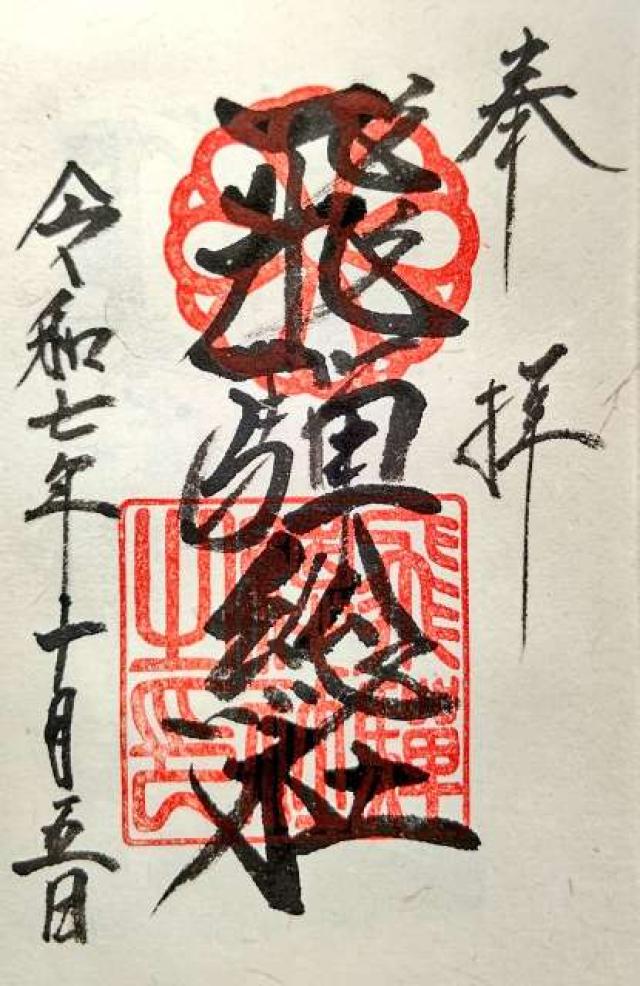 奉拝
飛騨総社
飛騨総社之印
令和七年十月五日